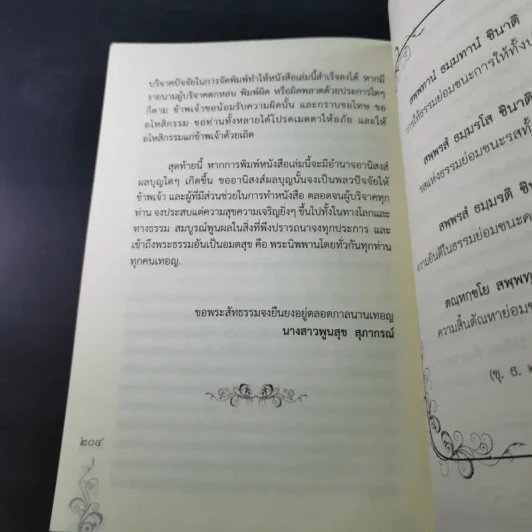 บริจาคปัจจัยในการจัดพิมพ์ทำให้หนังสือเล่มนี้สำเร็จลงได้ หากมี
รายนามผู้บริจาคตกหล่น พิมพ์ผิด หรือผิดพลาดด้วยประการใดๆ
ก็ตาม ข้าพเจ้าขอน้อมรับความผิดนั้น และกราบขอโทษ ขอ
อโหสิกรรม ขอท่านทั้งหลายได้โปรดเมตตาให้อภัย และให้
อโหสิกรรมแก่ข้าพเจ้าด้วยเถิด
สุดท้ายนี้ หากการพิมพ์หนังสือเล่มนี้จะมีอำนาจอานิสงส์
ผลบุญใดๆ เกิดขึ้น ขออานิสงส์ผลบุญนั้นจงเป็นพลวปัจจัยให้
ข้าพเจ้า และผู้ที่มีส่วนช่วยในการทำหนังสือ ตลอดจนผู้บริจาคทุก
ท่าน จงประสบแต่ความสุขความเจริญยิ่งๆ ขึ้นไปทั้งในทางโลกและ
ทางธรรม สมบูรณ์พูนผลในสิ่งที่พึงปรารถนาจงทุกประการ และ
เข้าถึงพระธรรมอันเป็นอมตสุข คือ พระนิพพานโดยทั่วกันทุกท่าน
ทุกคนเทอญ.
ขอพระสัทธรรมจงยืนยงอยู่ตลอดกาลนานเทอญ
นางสาวพูนสุข สุภากรณ์
๒๐๔
สพฺพทานํ ธมฺมทานํ ชินาติ
การให้ธรรมย่อมชนะการให้ทั้งป
สพฺพรสํ ธมฺมรโส ชินาติ
รสแห่งธรรมย่อมชนะรสทั้ง
สพฺพรตึ ธมฺมรติ ชิ
ความยินดีในธรรมย่อมชนะค
ตณฺหกฺขโย สพฺพทุ
ความสิ้นตัณหาย่อมช
(ขุ. ธ. ๒